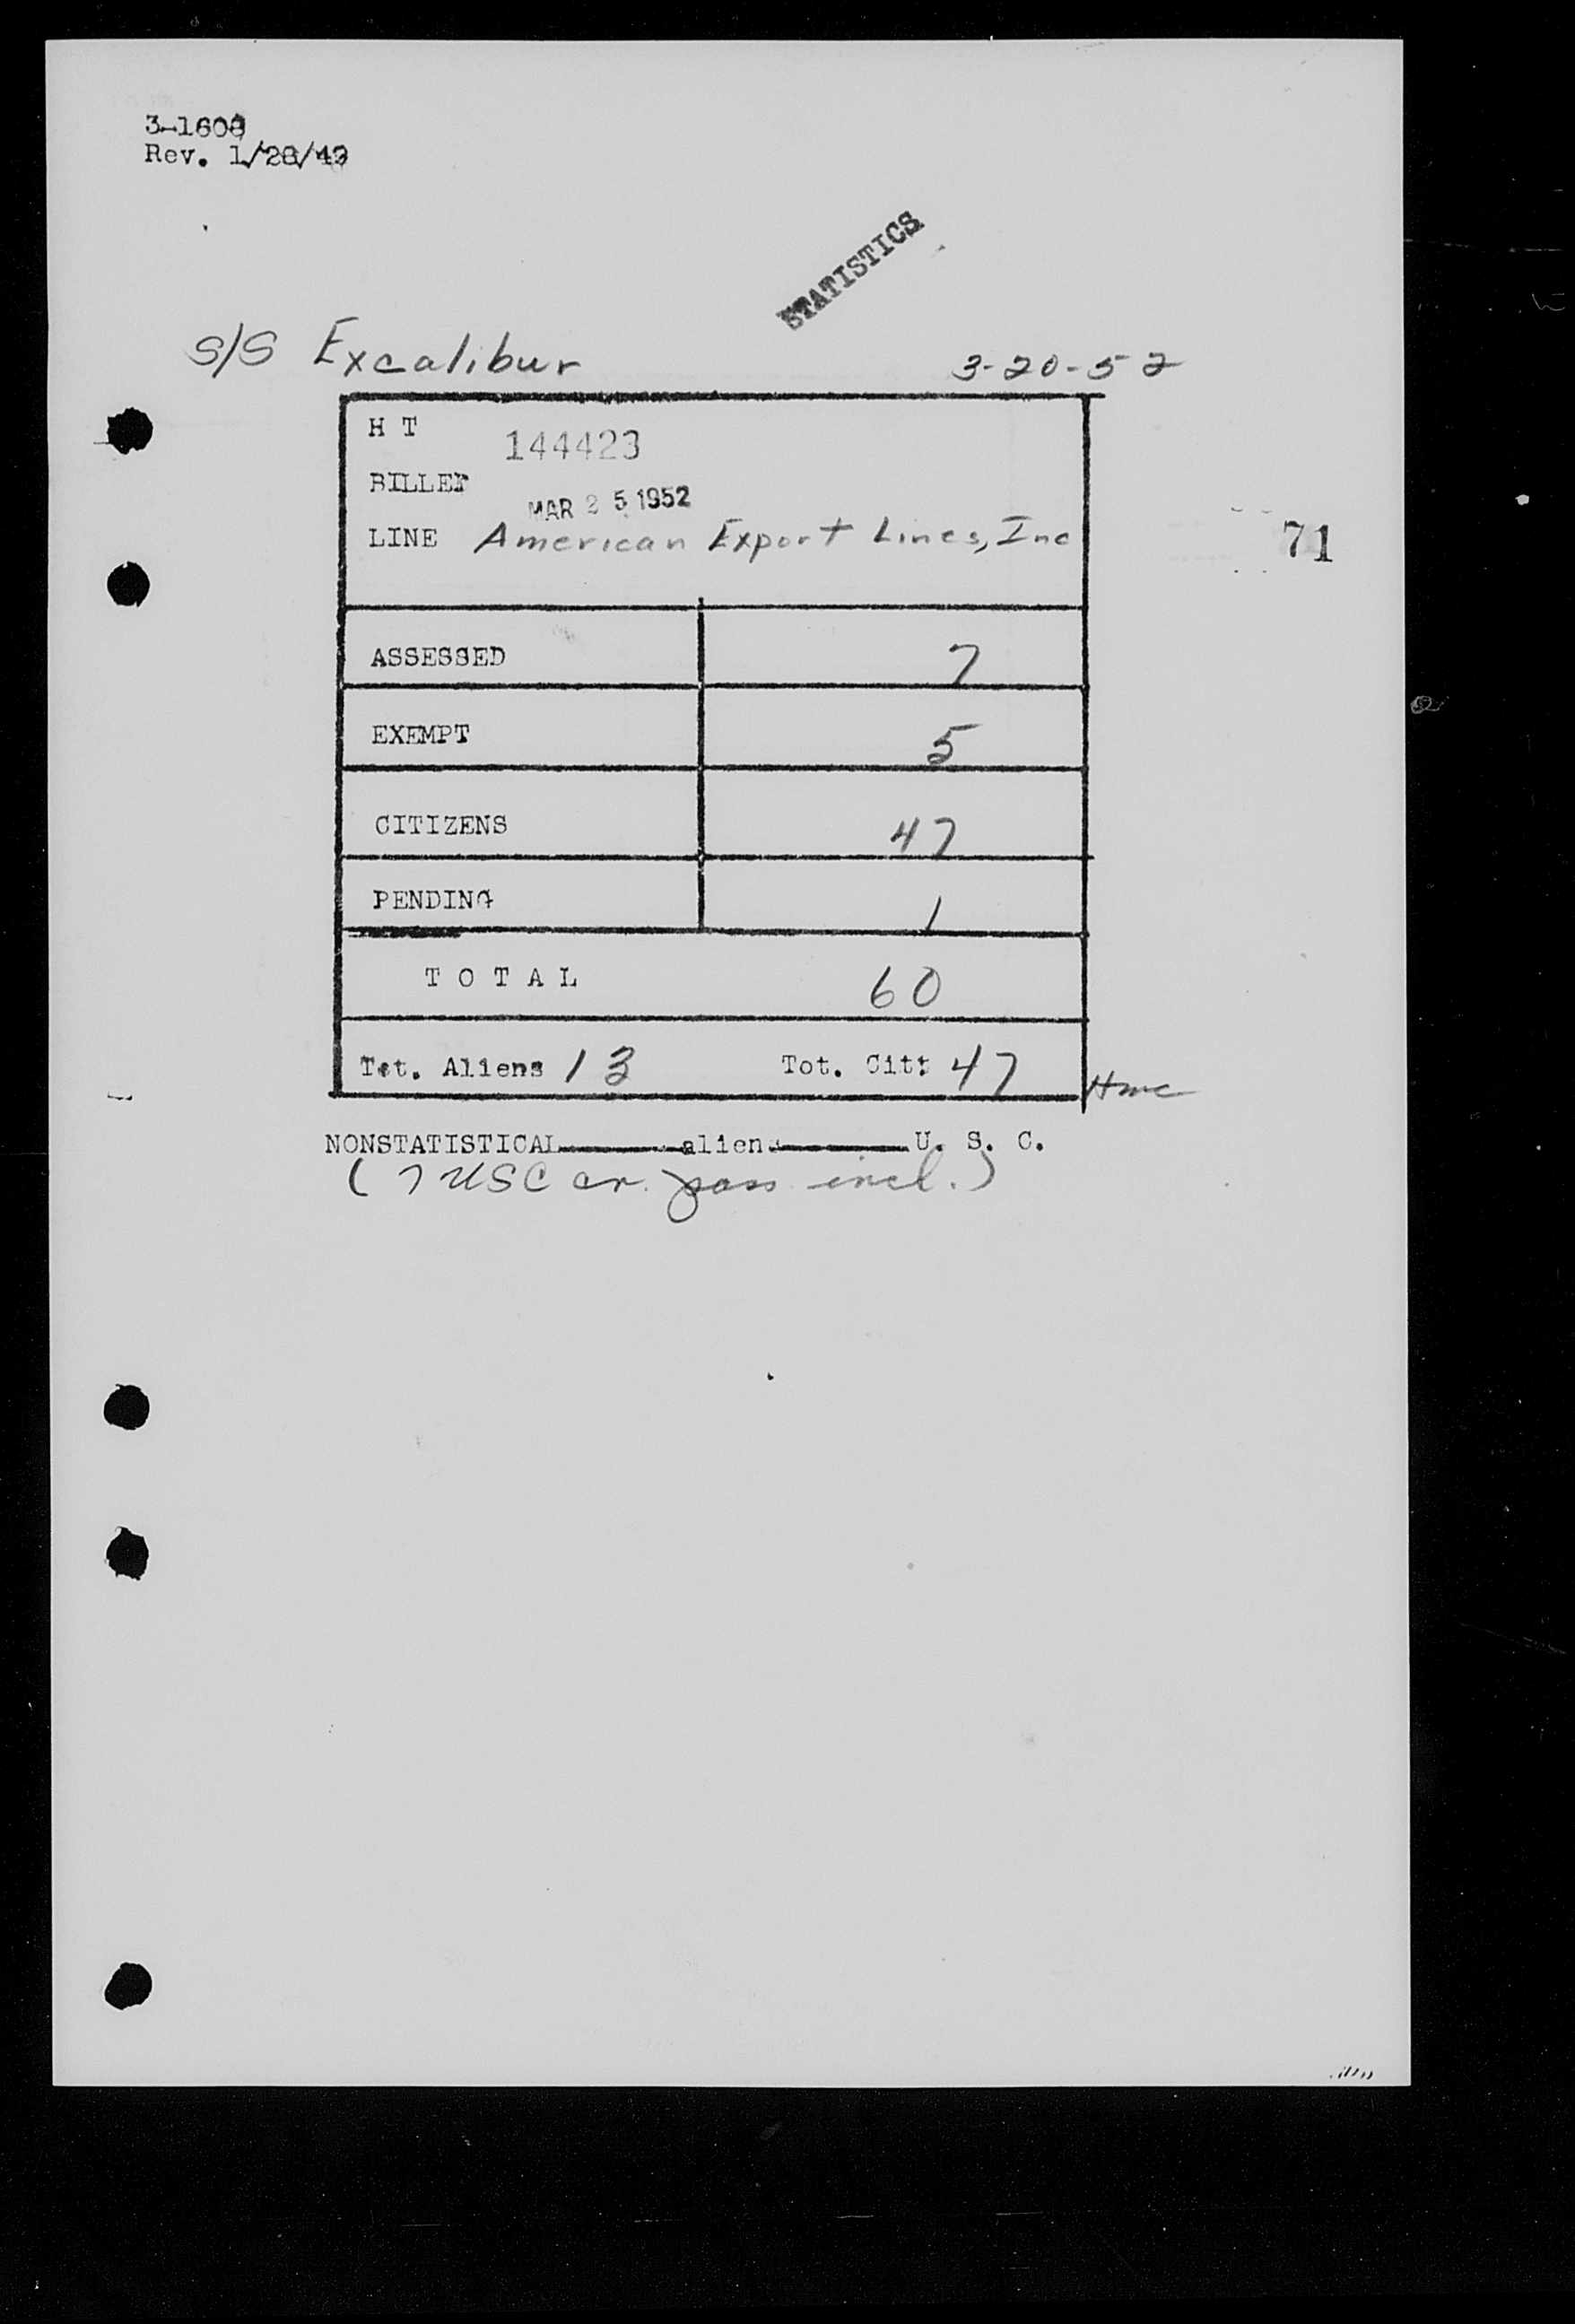 3-1608
Rev. 1/28/49
STATISTICS
S/S Excalibur 3-20-52
H T 144423
BILLED MAR 25 1952
LINE American Export Lines, Inc
71
ASSESSED 7
EXEMPT 5
CITIZENS 47
PENDING 1
T O T A L 60
Tot. Aliens 13 Tot. Cit: 47
NONSTATISTICAL aliens U. S. C.
(7 USC cr. pass incl.)